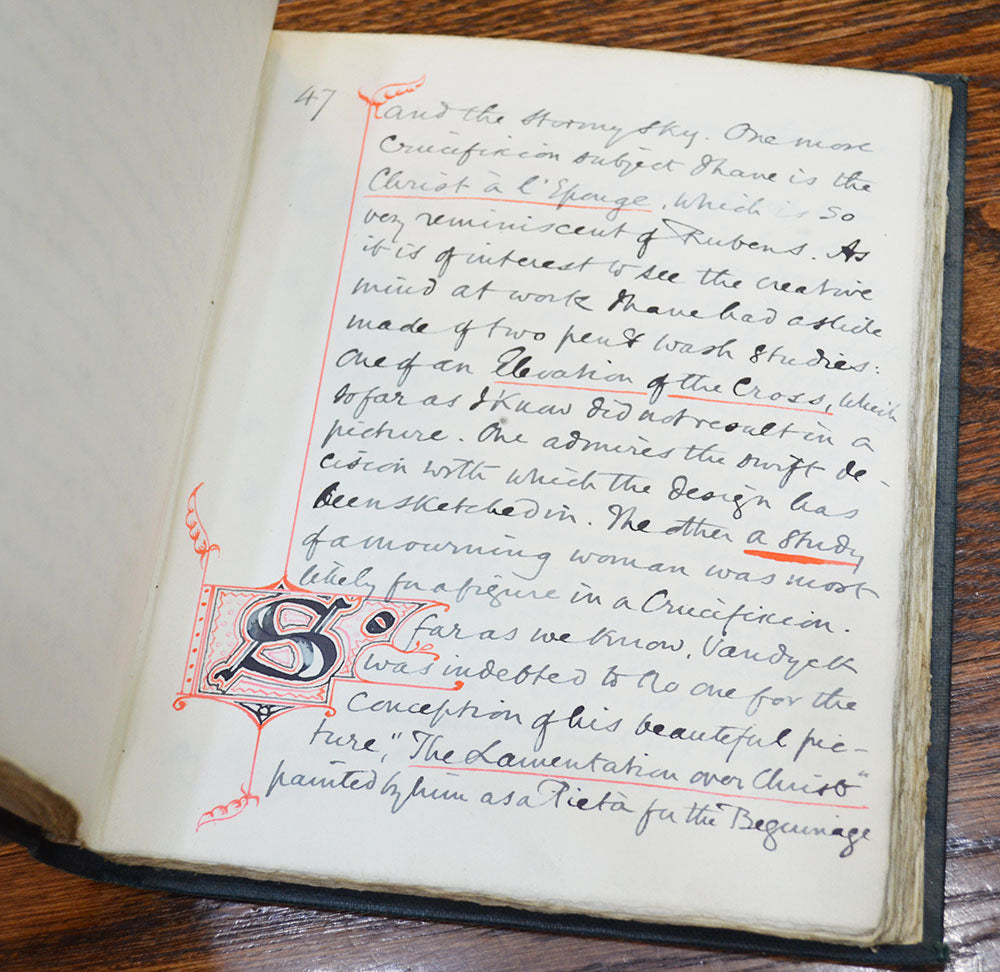 47
and the stormy sky. One more
Crucifixion subject I have is the
Christ à l'Eponge, which is so
very reminiscent of Rubens. As
it is of interest to see the creative
mind at work I have had a slide
made of two pen & wash studies:
one of an Elevation of the Cross, which
so far as I know did not result in a
picture. One admires the swift de-
cision with which the design has
been sketched in. The other a study
of a mourning woman was most
likely for a figure in a Crucifixion.
So far as we know, Vandyck
was indebted to no one for the
Conception of his beautiful pic-
ture, "The Lamentation over Christ"
painted by him as a Pietà for the Beguinage